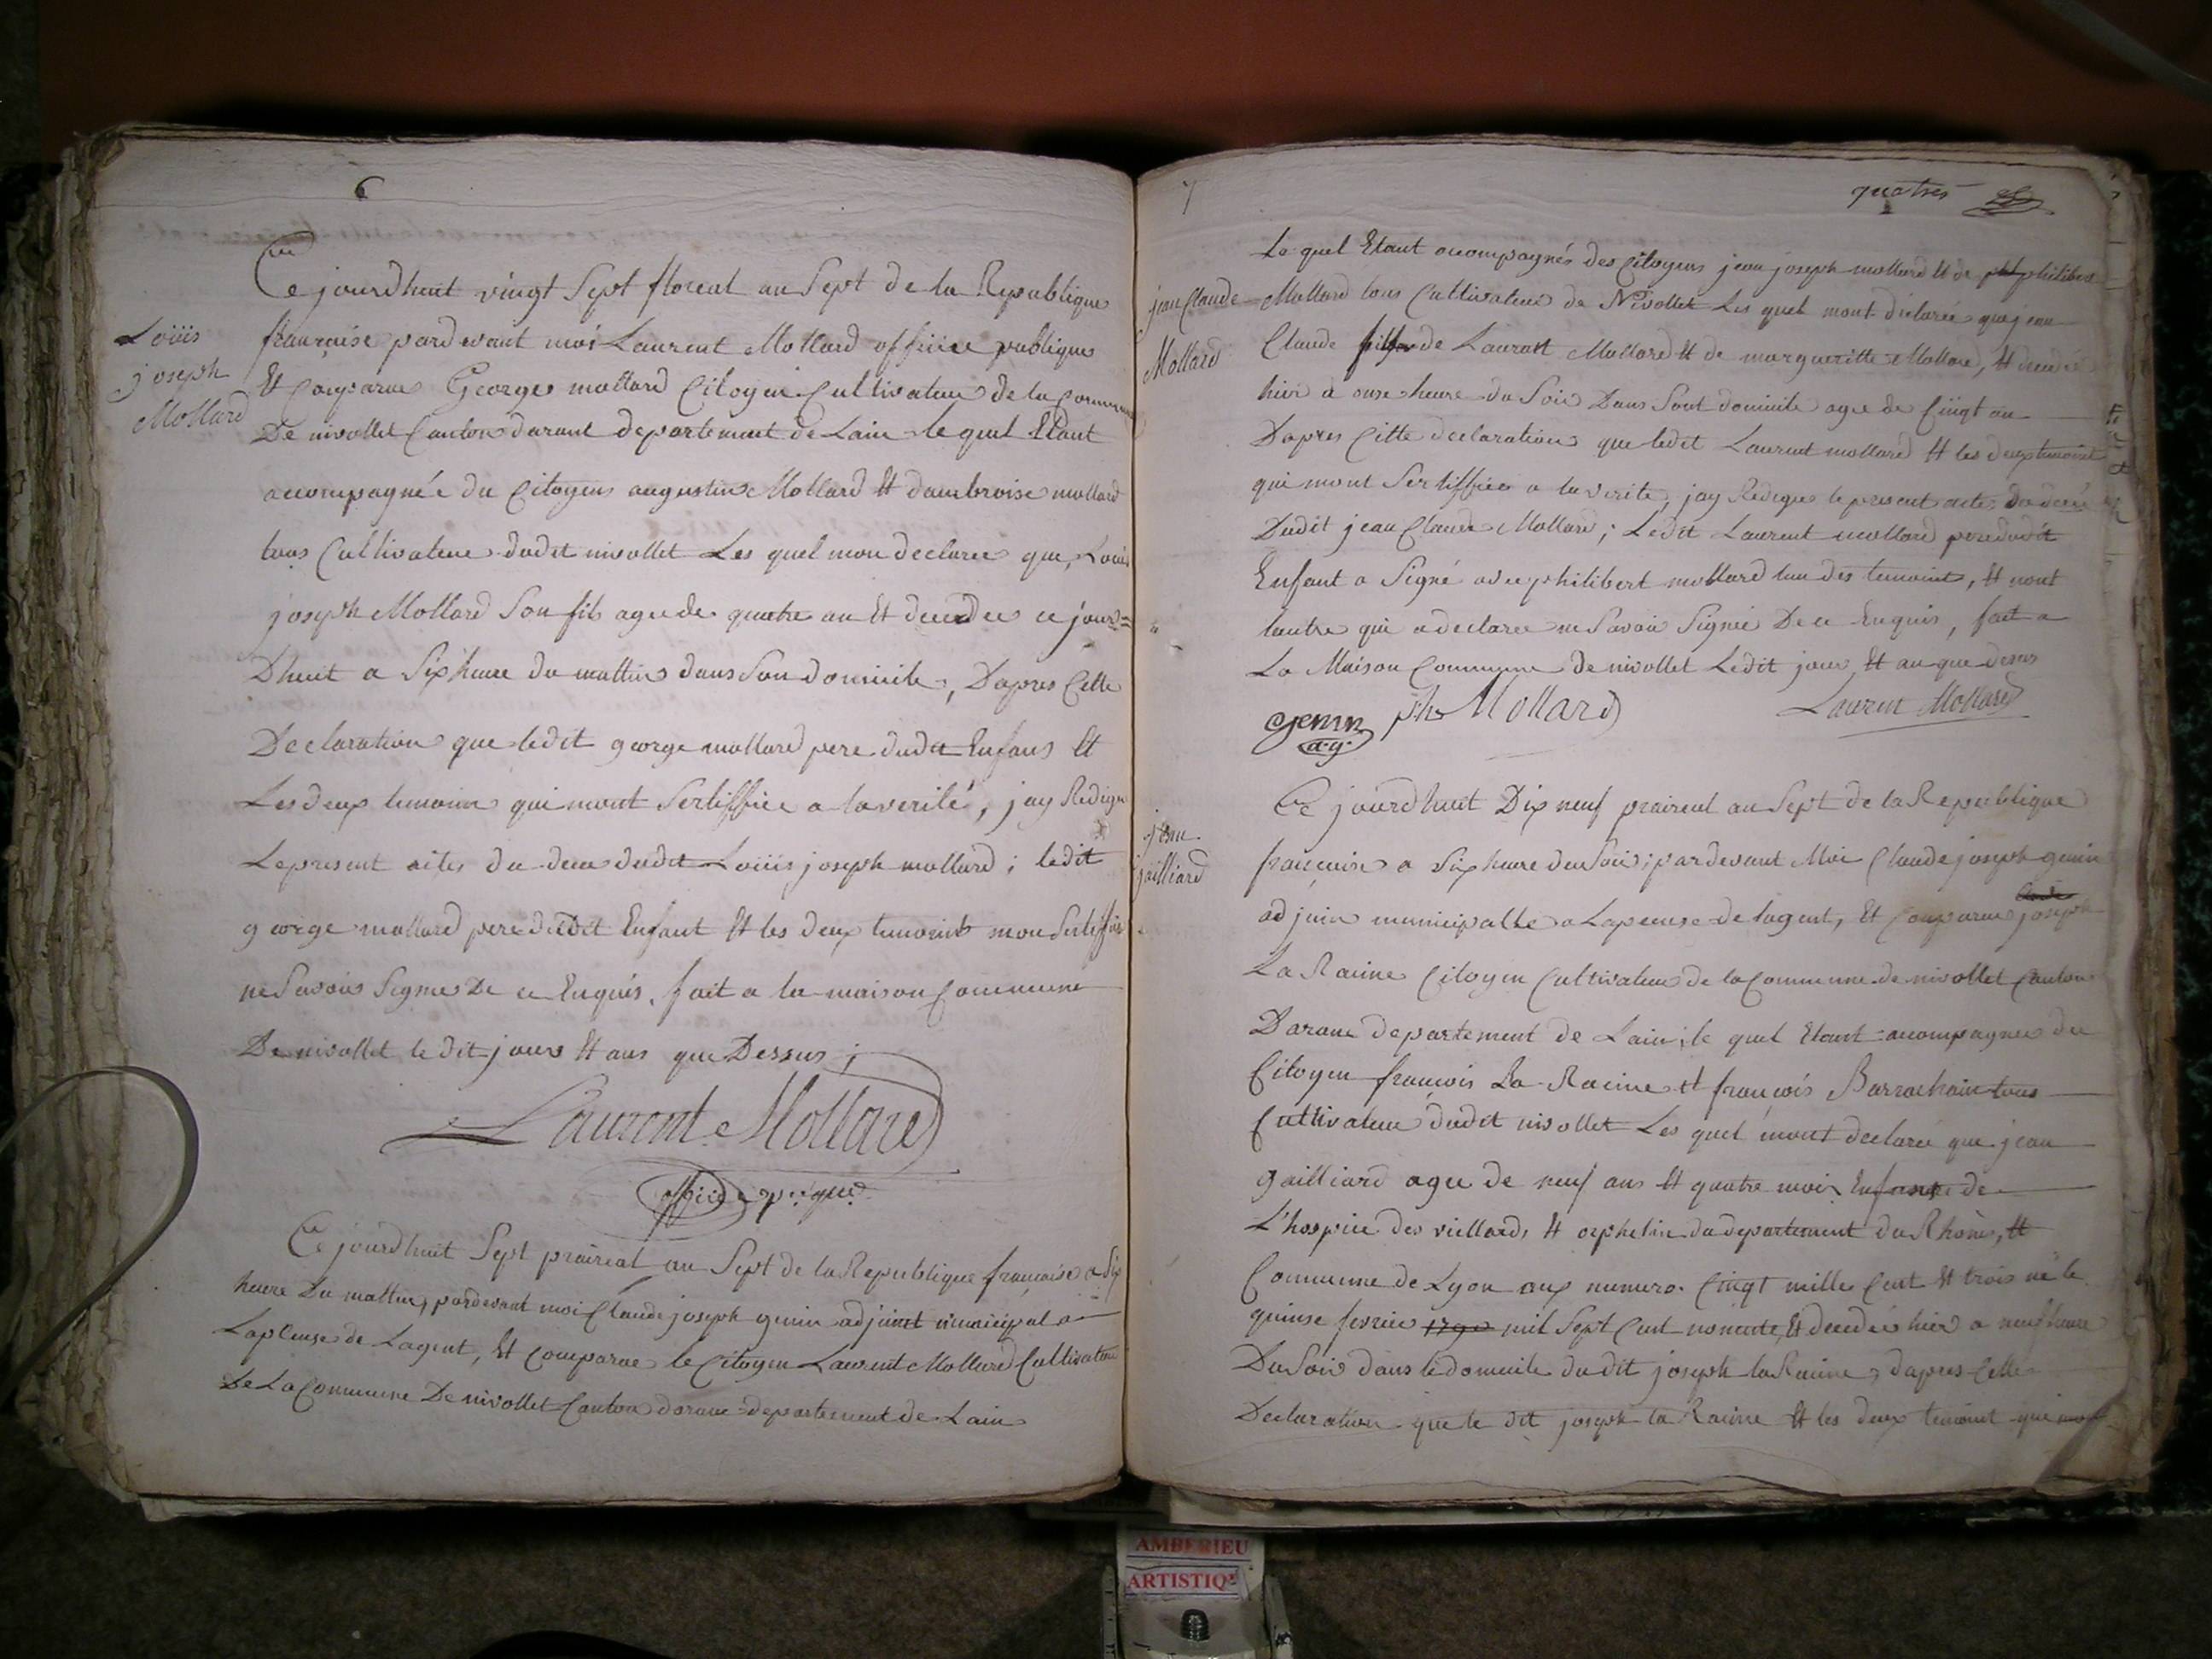 6
Ce jourdhuit vingt Sept floreal an Sept de la Republique
Loüis
joseph
Mollard
francaise pardevant moi Laurent Mollard officier publique
Et Comparue George mollard Citoyen Cultivateur de la Commune
De nivollet Canton darant departement de Lain le quel Etant
accompagnée du Citoyens augustin Mollard Et dambroise mollard
tous Cultivateur dudit nivollet Les quel mon declaree que, Loüis
joseph Mollard Son fils agee de quatre an Et decedee ce jour=
Dhuit a Six heure du mattin dans Son domicile, Dapres Cette
Declaration que ledit george mollard pere dudit Enfans Et
Les deux temoins qui mont Sertiffiee a la verité, jay Redige
Le present actes du deces dudit Loüis joseph mollard ; ledit
george mollard pere dudit Enfant Et les deux temoint mon Sertiffiee
ne Savoir Signer De ce Enquis, fait a la maison Commune
De nivollet le dit jours Et ans que Dessus ;
Laurent Mollard
officier
Ce jourdhuit Sept praireal an Sept de la Republique francaise a Six
heure Du mattin, pardevant moi Claude joseph genin adjoint municipal a
Lapcense de Lagent, Et Comparue le Citoyen Laurent Mollard Cultivateur
De La Commune De nivollet Canton darane departement de Lain
7
quatres
Le quel Etant accompagnés des Citoyens jean joseph mollard Et de philibert
jean Claude
Mollard
Mollard tous Cultivateur de Nivollet Les quel mont déclarée que jean
Claude fils de Laurant Mollard Et de margueritte Mollard, Et decedé
hier a onse heure du Soir Dans Sont domicile agee de Cingt an
Dapres Cette declaration que ledit Laurent mollard Et les deux temoint
qui mont Sertiffiee a la verite, jay Redigee le present actes du deces
Dudit jean Claude Mollard ; Ledit Laurent mollard pere dudit
Enfant a Signé avec philibert mollard lun des temoint, Et nont
lautre qui a declaree ne Savoir Signee De ce Enquis, fait a
La Maison Commune de nivollet Ledit jour Et an que dessus
genin ph Mollard Laurent Mollard
a.g.
Ce jourdhuit Dix neuf praireal an Sept de la Republique
jean
gailliard
francaise a Six heure du Soir ; pardevant Moi Claude joseph genin
adjoin municipalle a Lapcense de lagent, Et Comparue joseph
La Racine Citoyen Cultivateur de la Commune de nivollet Canton
Darane departement de Lain, le quel Etant accompagnee du
Citoyen francois La Racine et francois Barrachain tous
Cultivateur dudit nivollet Les quel mont declaree que jean
gailliard agee de neuf ans Et quatre mois Enfante de
L'hospice des viellards Et orphelin du departement du Rhone, Et
Commune de Lyon aux numero Cingt mille Cent Et trois né le
quinse fevrier 1790 mil Sept Cent nonente, Et decedée hier a neuf heure
Du Soir dans le domicile du dit joseph la Racine, dapres Cette
Declaration que le dit joseph la Racine Et les deux temoint qui mont
AMBERIEU
ARTISTIQ